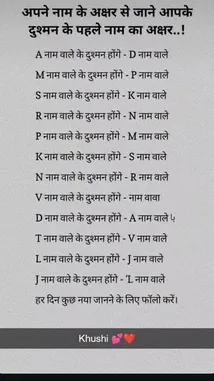 अपने नाम के अक्षर से जाने आपके
दुश्मन के पहले नाम का अक्षर..!
A नाम वाले के दुश्मन होंगे - D नाम वाले
M नाम वाले के दुश्मन होंगे - P नाम वाले
S नाम वाले के दुश्मन होंगे - K नाम वाले
R नाम वाले के दुश्मन होंगे - N नाम वाले
P नाम वाले के दुश्मन होंगे - M नाम वाले
K नाम वाले के दुश्मन होंगे - S नाम वाले
N नाम वाले के दुश्मन होंगे - R नाम वाले
V नाम वाले के दुश्मन होंगे - नाम वावा
D नाम वाले के दुश्मन होंगे - A नाम वाले
T नाम वाले के दुश्मन होंगे - V नाम वाले
L नाम वाले के दुश्मन होंगे - J नाम वाले
J नाम वाले के दुश्मन होंगे - 'L नाम वाले
हर दिन कुछ नया जानने के लिए फॉलो करें।
Khushi 💕❤️